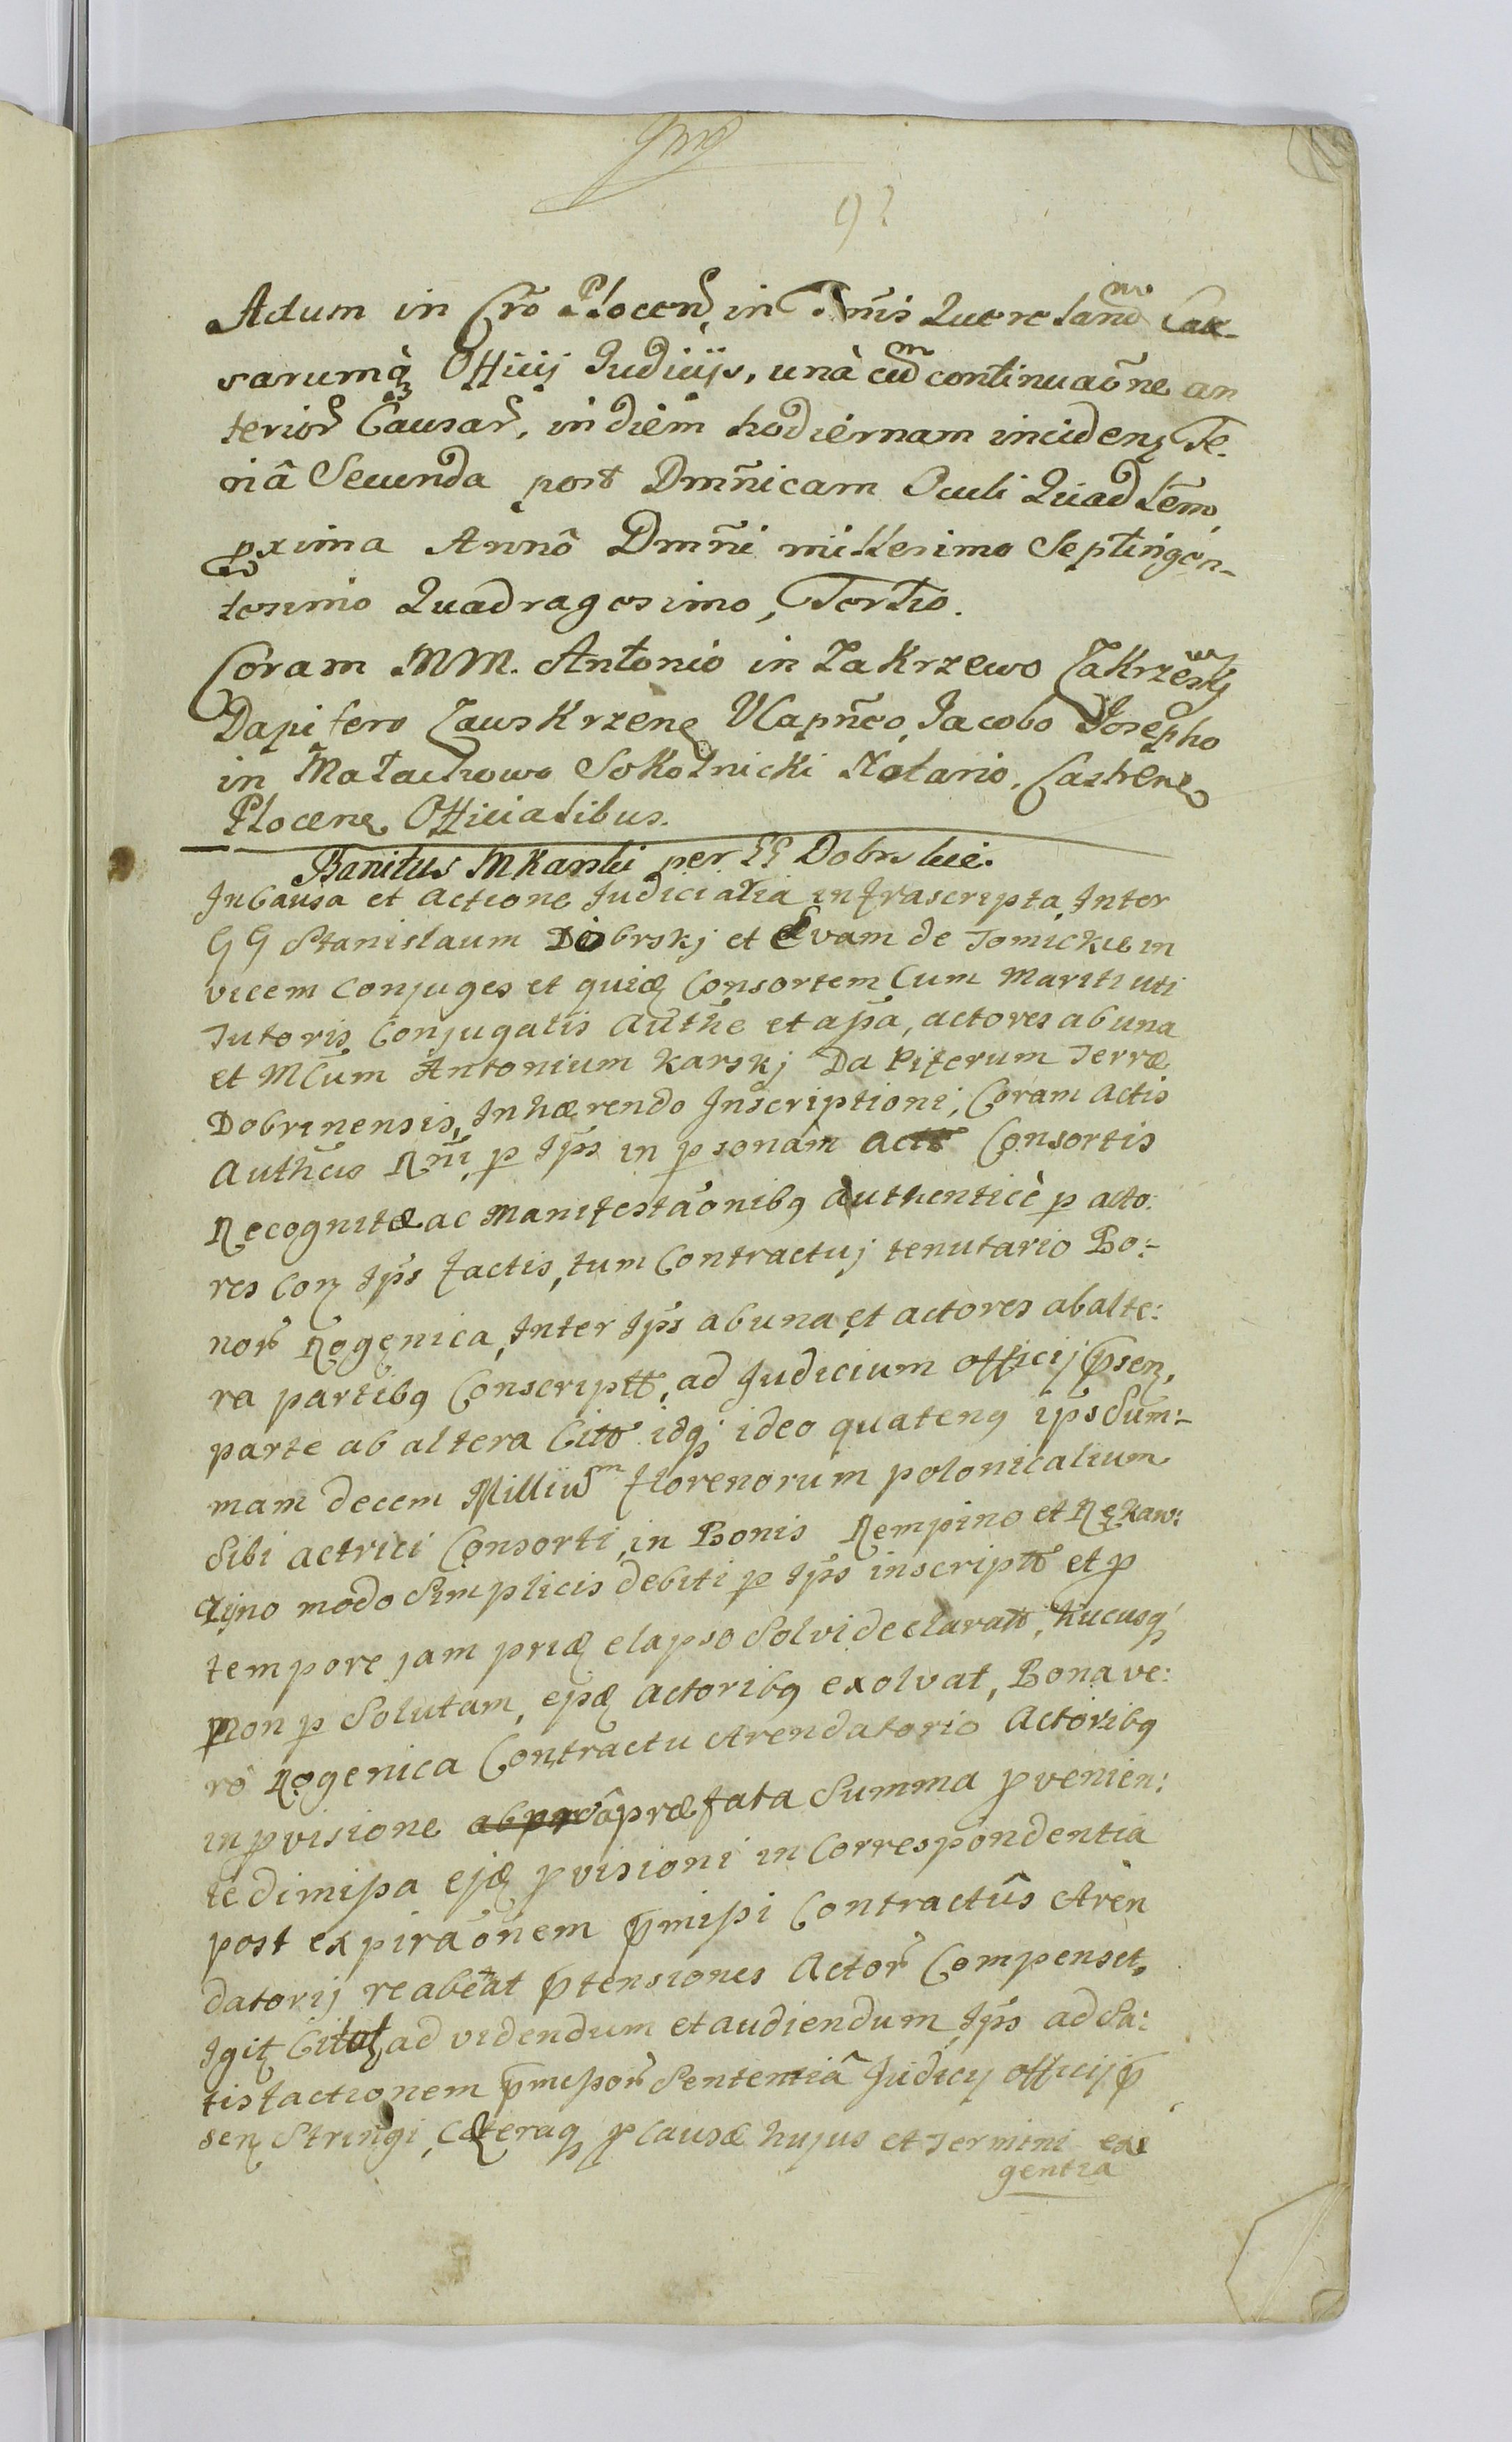 92
Actum in Cro Plocen, in Tmis Querelarum Cau-
sarumq Officij Judicijs, unà cum continuaone an
terior Causar, in diem hodiernam inciden Fe-
riâ Secunda post Dmnicam Oculi Quad̃lem
pxima Annô Dmni millesimo Septingen-
tesimo Quadragesimo, Tertio.
Coram MM. Antonio in Zakrzewo Zakrzewski
Dapifero Zawskrzen VCapneo, Jacobo Josepho
in Małachowo Sokolnicki Notario, Castren
Plocen Officialibus.
Banitus MKarski per GG Dobrskie.
In Causa et actione Judiciaria infrascripta, Inter
GG Stanislaum Dobrskj et Evam de Tomickie in
vicem Conjuges et quidem Consortem Cum Mariti uti
Tutoris Conjugalis authe et assa, actores ab una
et MCum Antonium Karskj Dapiferum Terræ
Dobrinensis, Inhærendo Inscriptioni, Coram Actis
Authcis Rni, p Ips in psonam Actt Consortis
Recognitæ ac Manifestaonibq authenticè p acto:
res Con Ips factis, tum Contractuj tenutario Bo:-
nor Rogenica, Inter Ips ab una et actores ab alte:
ra partibq Conscriptt, ad Judicium officij psen,
parte ab altera Citto idq ideo quatenq ips Sum:-
mam decem Millium florenorum polonicalium
Sibi actrici Consorti, in Bonis Rempino et Rękaw:
czyno modo Simplicis debiti p Ips inscriptt et p
tempore jam pridem elapso Solvi declaratt, hucusq
non p Solutam, ejsdem actoribq exolvat, Bona ve:
rò Rogenica Contractu Arendatorio Actoribq
in pvisione â præfata Summa pvenien:
te dimissa ejdem pvisioni in Correspondentia
post expiraonem pmissi Contractûs Aren
datorij reabeat ptensiones Actor Compenset,
Igit Citat ad videndum et audiendum Ips ad Sa:
tisfactionem pmissor Sententiâ Judicij officij p
sen Stringi, Cæteraq p Causæ hujus et Termini exi
gentia